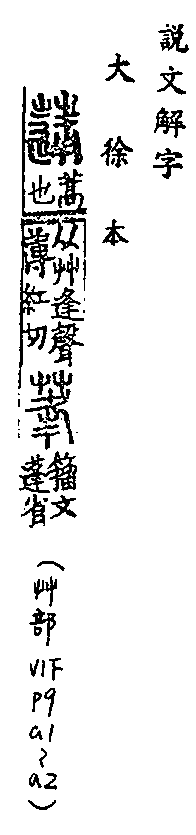 説文解字
大徐本
蓬 蒿
也
从艸逢聲
薄紅切
莑 籀文
蓬省
(艸部 V1F P9 a1~a2)